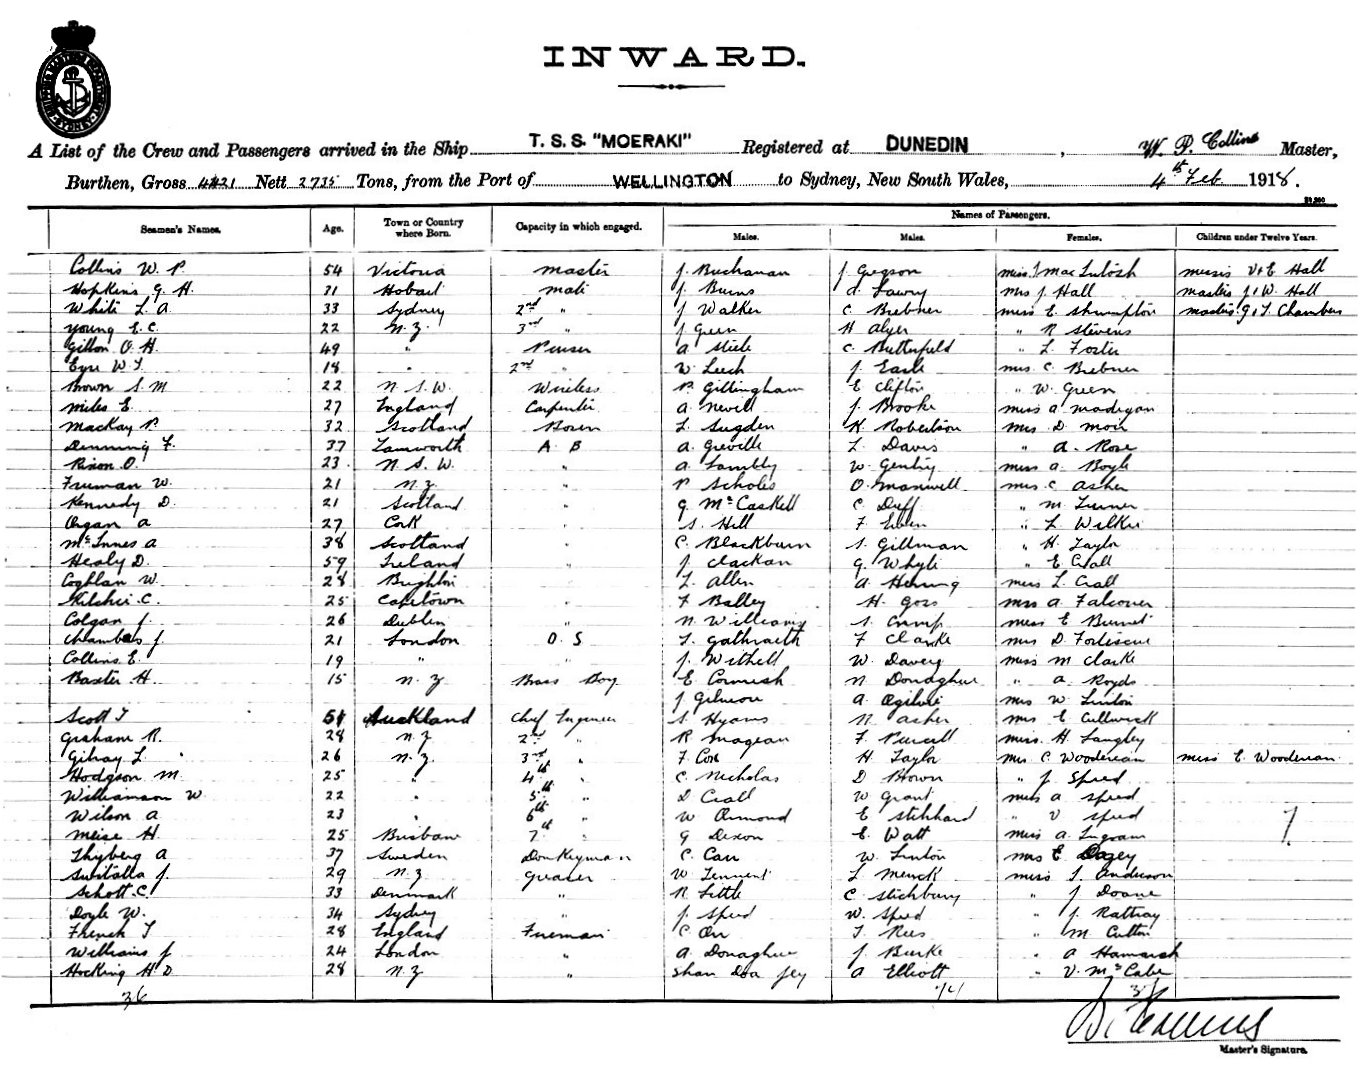 INWARD.
A List of the Crew and Passengers arrived in the Ship T. S. S. "MOERAKI" Registered at DUNEDIN, W. P. Collins Master,
Burthen, Gross 4421 Nett 2735 Tons, from the Port of WELLINGTON to Sydney, New South Wales, 4th Feb 1918.
Names of Passengers.
Seamen's Names. Age. Town or Country where Born. Capacity in which engaged. Males. Males. Females. Children under Twelve Years.
Collins W. P. 54 Victoria master J. Buchanan J Gregson miss J MacIntosh misses V & E Hall
Hopkins G. H. 31 Hobart mate J. Burns Lawry mrs J. Hall masters J & W. Hall
White L. A. 33 Sydney 2nd " J Walker C. Brebner miss E Skrimpton masters G & J Chambers
Young E. C. 22 N. Z. 3rd " J Green H Alyer " R Stevens
Gillon O. H. 49 " Purser A Steele C. Butterfield " L. Foster
Eyre W. J. 18 " 2nd " W. Leech J. Earle mrs C. Brebner
Brown S. M 22 N. S. W. Wireless P. Gillingham E Clifton " W. Green
Miles E. 27 England Carpenter A. Newell J. Brooke miss A Madigan
Mackay P. 32 Scotland Bosun L. Sugden K Robertson mrs D Moir
Denning F. 37 Tamworth A B A. Greville L Davis " A. Rose
Rixon O. 23 N. S. W. " A Lambly W. Gentry miss A. Boyle
Freeman W. 21 N. Z. " P Scholes O Maxwell mrs C Asher
Kennedy D. 21 Scotland " G. McCaskell C Duff " M. Turner
Organ A 27 Cork " S. Hill F " L Wilkie
McInnes A 38 Scotland " C. Blackburn S. Gillman " H. Taylor
Healy D. 59 Ireland " J. Clackan G. Whyte " E Crall
Coghlan W. 28 Brighton " L. Allen A Hening miss L. Crall
Kitchei C. 25 Capetown " F Balley H. Goss mrs A Falconer
Colgan J. 26 Dublin " N. Williams S. Crump miss E Burnet
Chambers J 21 London O. S L. Gathraeth F Clarke mrs D Fortescue
Collins E. 19 " " J. Withell W. Davey miss M Clarke
Baxter H. 15 N. Z Brass Boy E Cornish N Donaghue " A. Royds
J Gilmore A Ogilvie mrs W Linton
Scott J 51 Auckland Chief Engineer S Hyams N Asher mrs E Cullwick
Graham R. 28 N. Z 2nd " R Magean F Purcell miss H. Langley
Gilray L 26 N. Z. 3rd " F. Cox H Taylor mrs C Woodman miss E Woodman
Hodgson M. 25 " 4th " C Nicholas D Brown " J. Speed
Williamson W. 22 " 5th " D Crall W Grant miss A Speed
Wilson A 23 " 6th " W Ormond E Stichhard " V Speed
Meise H. 25 Brisbane 7th " G Dixon E. Watt miss A. Ingram 7.
Thyberg A 37 Sweden Donkeyman C. Carr W. Linton mrs E Dazey
J. 29 N. Z Greaser W Tennent L Meuck miss J. Anderson
Schott C. 33 Denmark " R Little C Stichbury " J Doane
Doyle W. 34 Sydney " J. Speed W. Speed " J. Rattray
French J 28 England Fireman C Orr T Rees " M Cutten
Williams J 24 London " A Donaghue J Burke " A Hamarsh
Hocking H D 28 N. Z " Shan Doa Jey A Elliott " V. McCabe
36 74 37
W. P. Collins
Master's Signature.